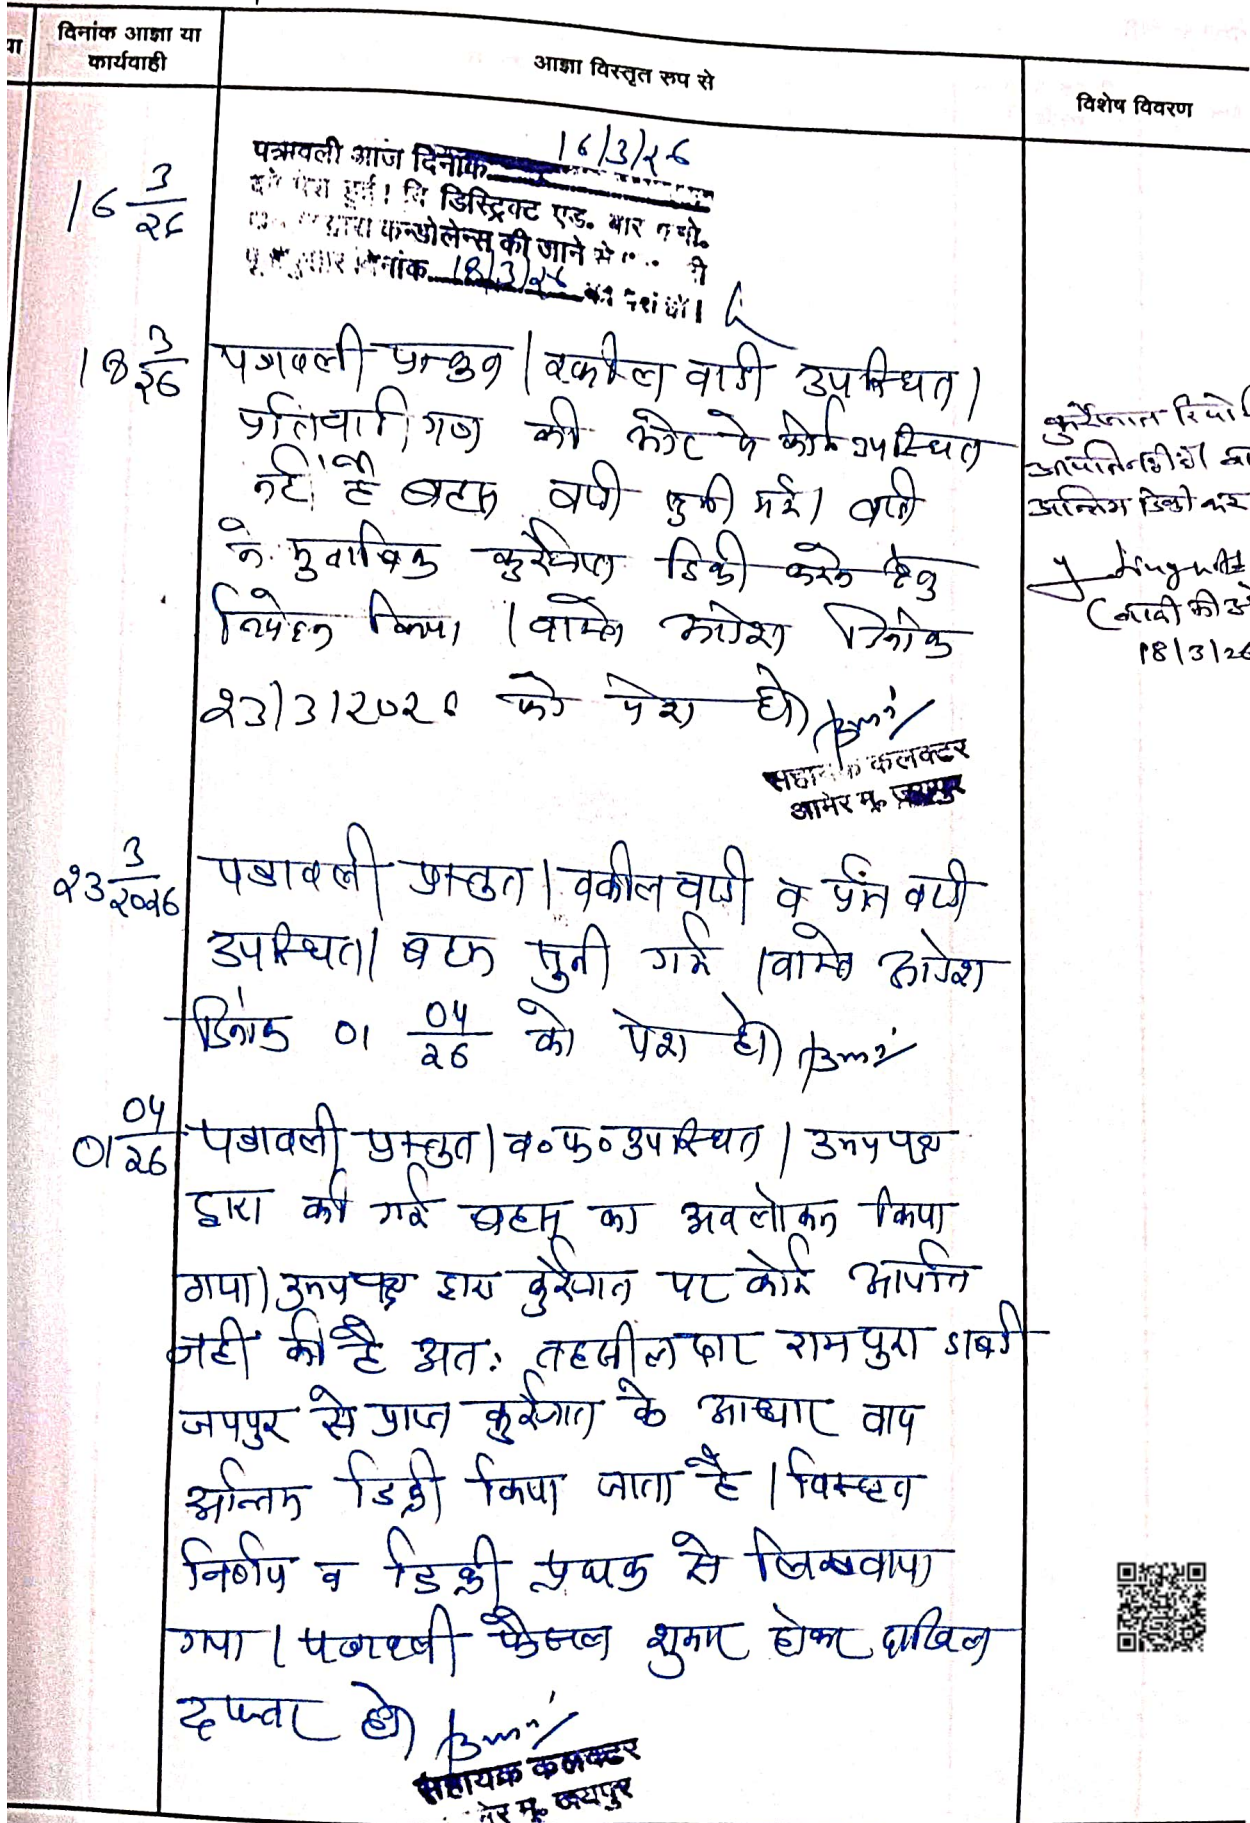 या
दिनांक आज्ञा या
कार्यवाही
आज्ञा विस्तृत रुप से
विशेष विवरण
16 3/26
पत्रावली आज दिनांक 16/3/26
पेश हुई। दि डिस्ट्रिक्ट एड. बार
द्वारा कन्डोलेन्स की जाने से
दिनांक 18/3/26 को पेश हो।
18 3/26
पत्रावली प्रस्तुत। वकील वादी उपस्थित।
प्रतिवादी गण की ओर से कोई उपस्थित
नहीं है बहस वादी सुनी गई। वादी
ने मुताबिक कुर्रेजात डिक्री करने हेतु
निवेदन किया। वास्ते आदेश दिनांक
23/3/2026 को पेश हो।
सहायक कलक्टर
आमेर मु. जयपुर
कुर्रेजात रिपो
आपत्ति नहीं है।
अन्तिम डिक्री कर
(वादी की ओ
18/3/26
23 3/2026
पत्रावली प्रस्तुत। वकील वादी व प्रति वादी
उपस्थित। बहस सुनी गई। वास्ते आदेश
दिनांक 01 04/26 को पेश हो।
01 04/26
पत्रावली प्रस्तुत। व॰फ॰उपस्थित। उभयपक्ष
द्वारा की गई बहस का अवलोकन किया
गया। उभयपक्ष द्वारा कुर्रेजात पर कोई आपत्ति
नहीं की है अत: तहसीलदार रामपुरा डाबडी
जयपुर से प्राप्त कुर्रेजात के आधार वाद
अन्तिम डिक्री किया जाता है। विस्तृत
निर्णय व डिक्री पृथक से लिखवाया
गया। पत्रावली फैसल शुमार होकर दाखिल
दफ्तर हो।
सहायक कलक्टर
मेर मु. जयपुर